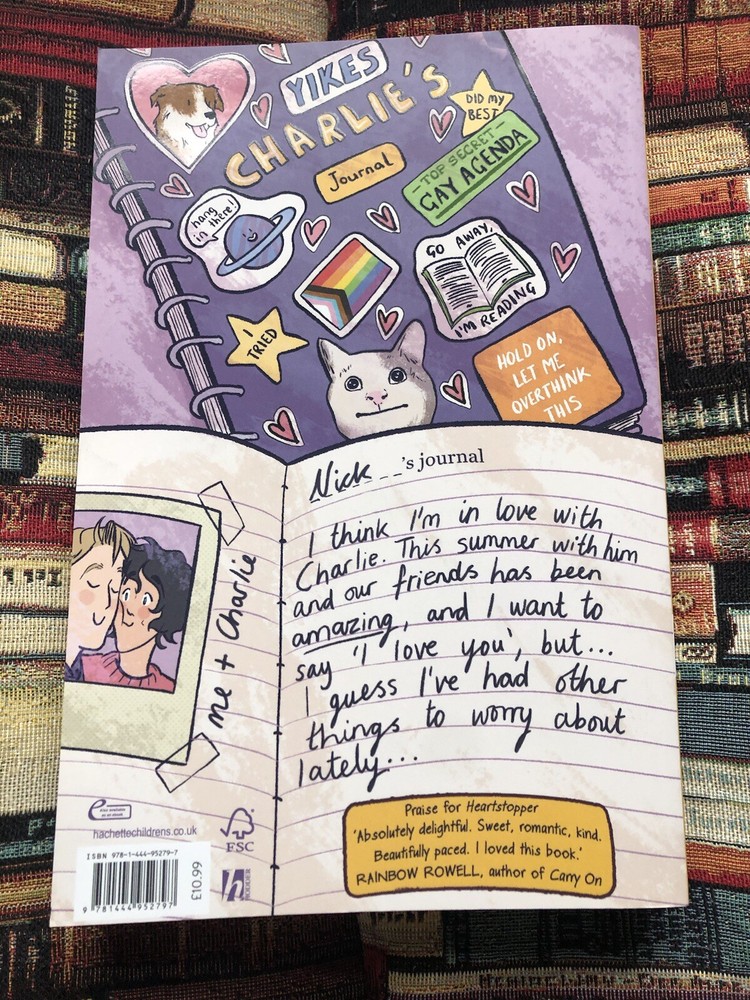 YIKES
CHARLIE'S
Journal
DID MY
BEST
-TOP SECRET-
GAY AGENDA
hang
in there!
GO AWAY,
I'M READING
I
TRIED
HOLD ON,
LET ME
OVERTHINK
THIS
Nick _ _'s journal
I think I'm in love with
Charlie. This summer with him
and our friends has been
amazing, and I want to
say 'I love you', but...
I guess I've had other
things to worry about
lately...
me + Charlie
Praise for Heartstopper
'Absolutely delightful. Sweet, romantic, kind.
Beautifully paced. I loved this book.'
RAINBOW ROWELL, author of Carry On
e
Also available
as an ebook
hachettechildrens.co.uk
FSC
ISBN 978-1-444-95279-7
9 781444 952797
£10.99
h
HODDER